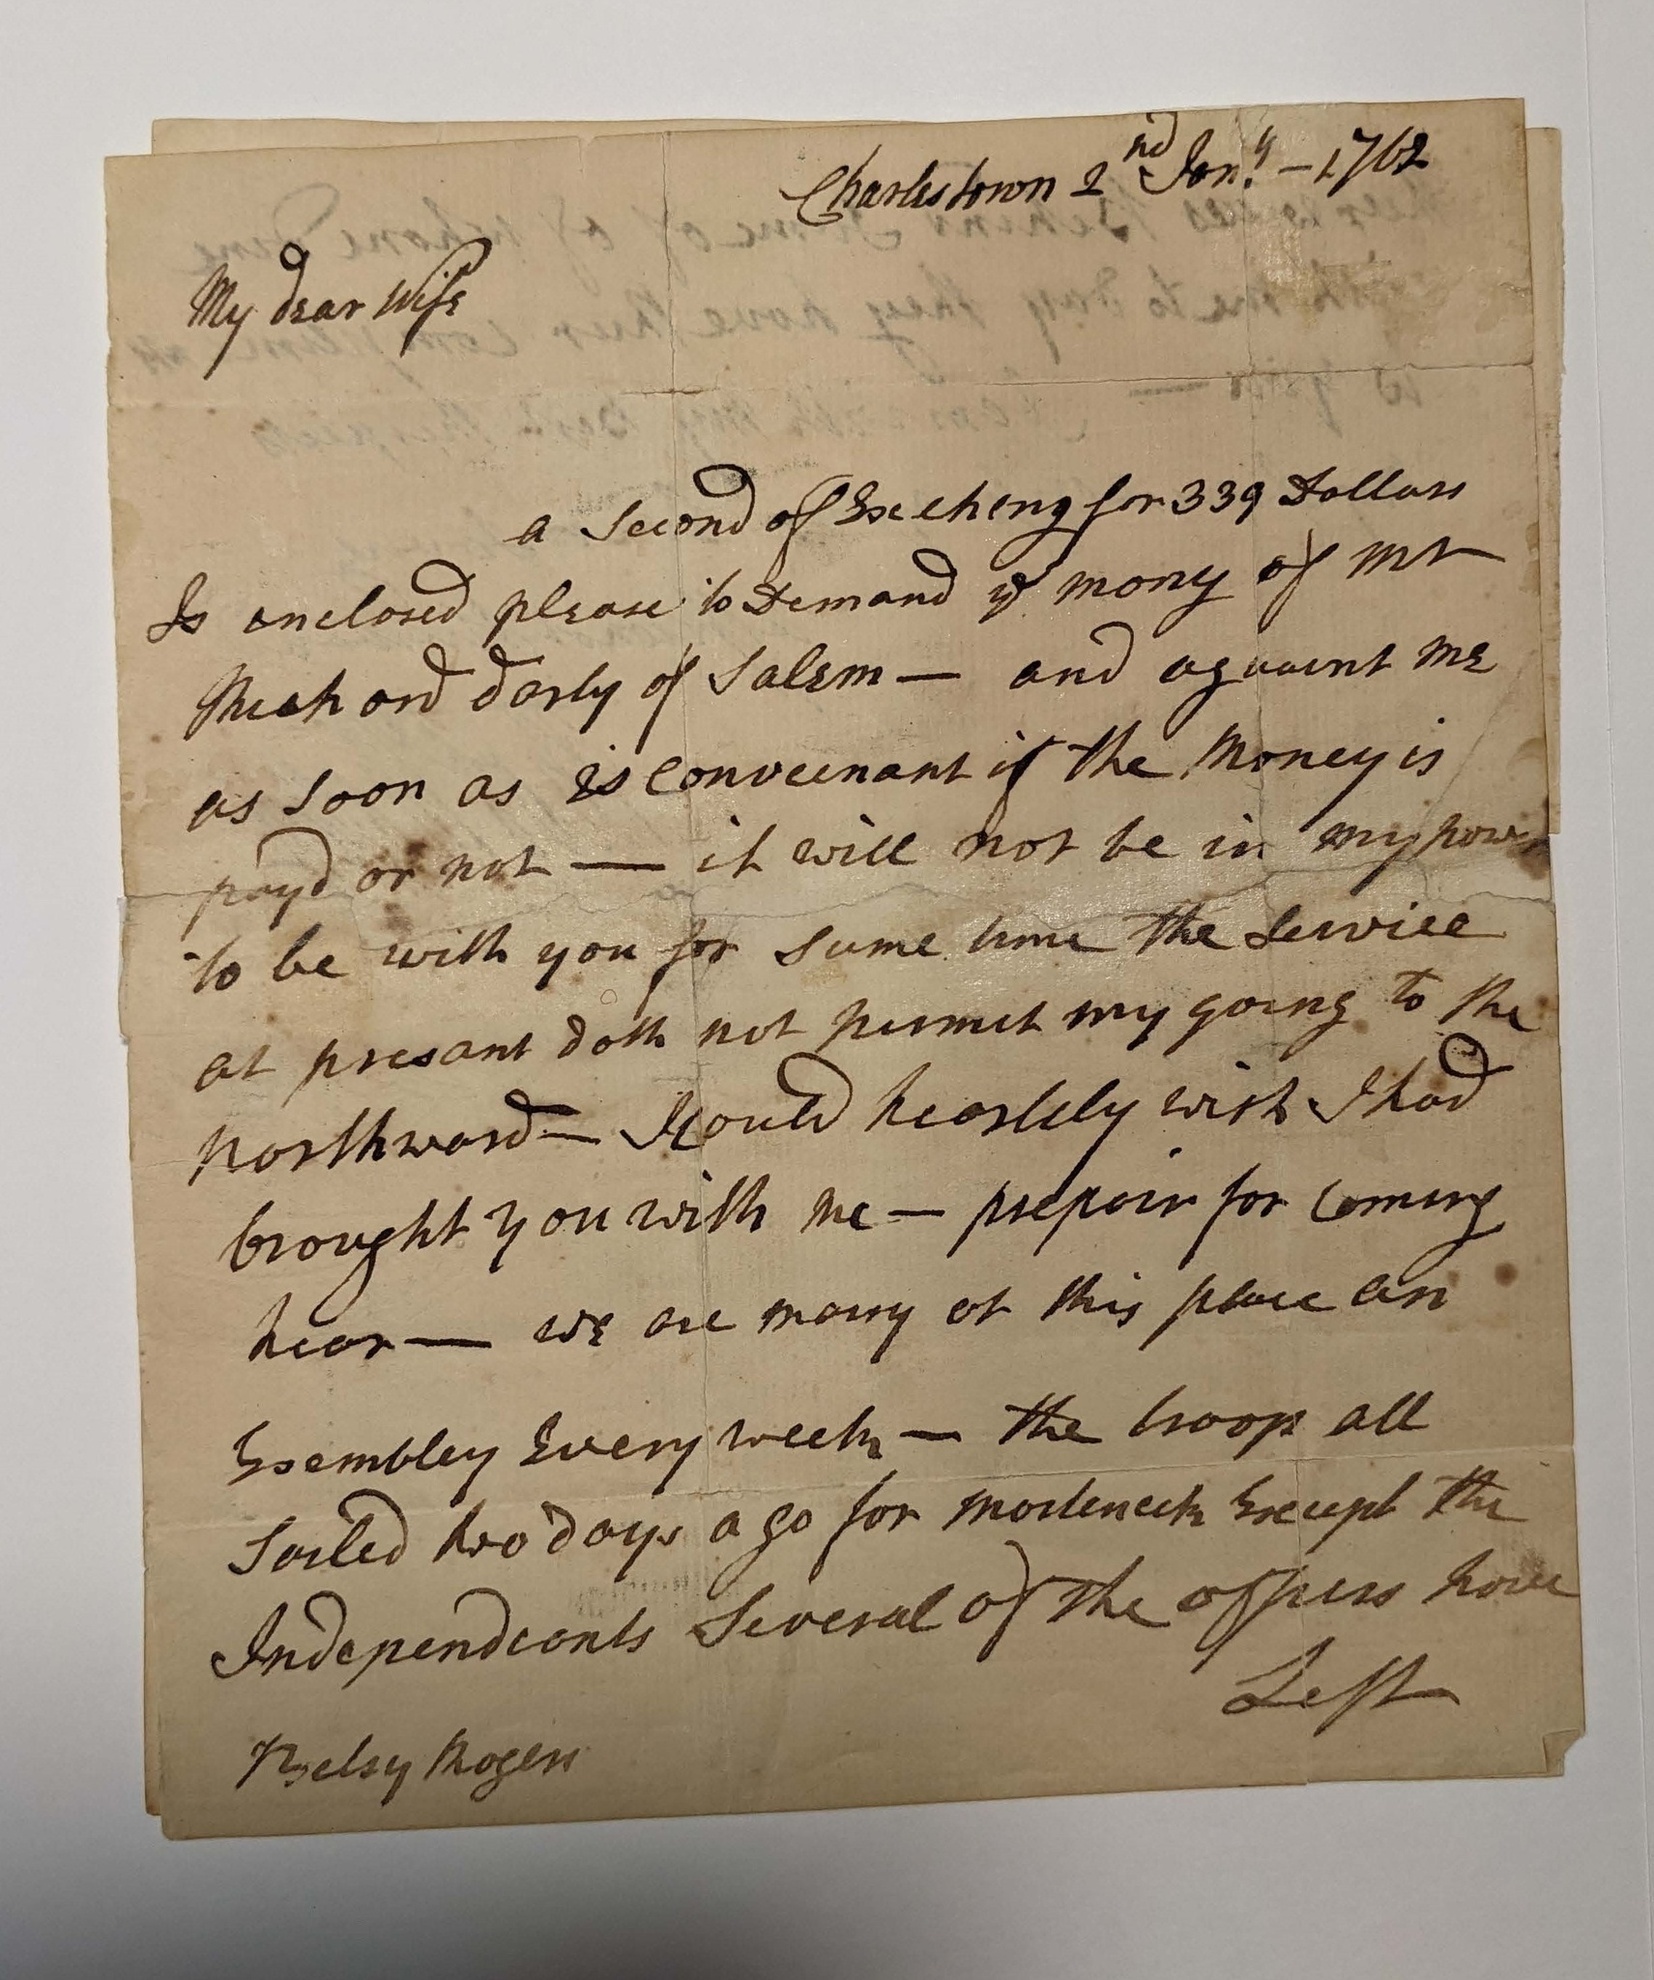 Charlestown 2nd Jany. - 1762
My dear Wife
a Second of Excheng for 339 Dollars
Is enclosed please to Demand ye mony of Mr
Richard darby of Salem — and aquaint me
as soon as is convenant if the Money is
payd or not — it will not be in my power
to be with you for some time the Service
at presant doth not permit my going to the
Northward — I Could heartely wish I had
brought you with me — prepair for Coming
hear — we are marry at this place an
Esembley Every week — the troops all
Sailed two days a go for Marteneck Except the
Independants Several of the officers have
Left
Betsy Rogers